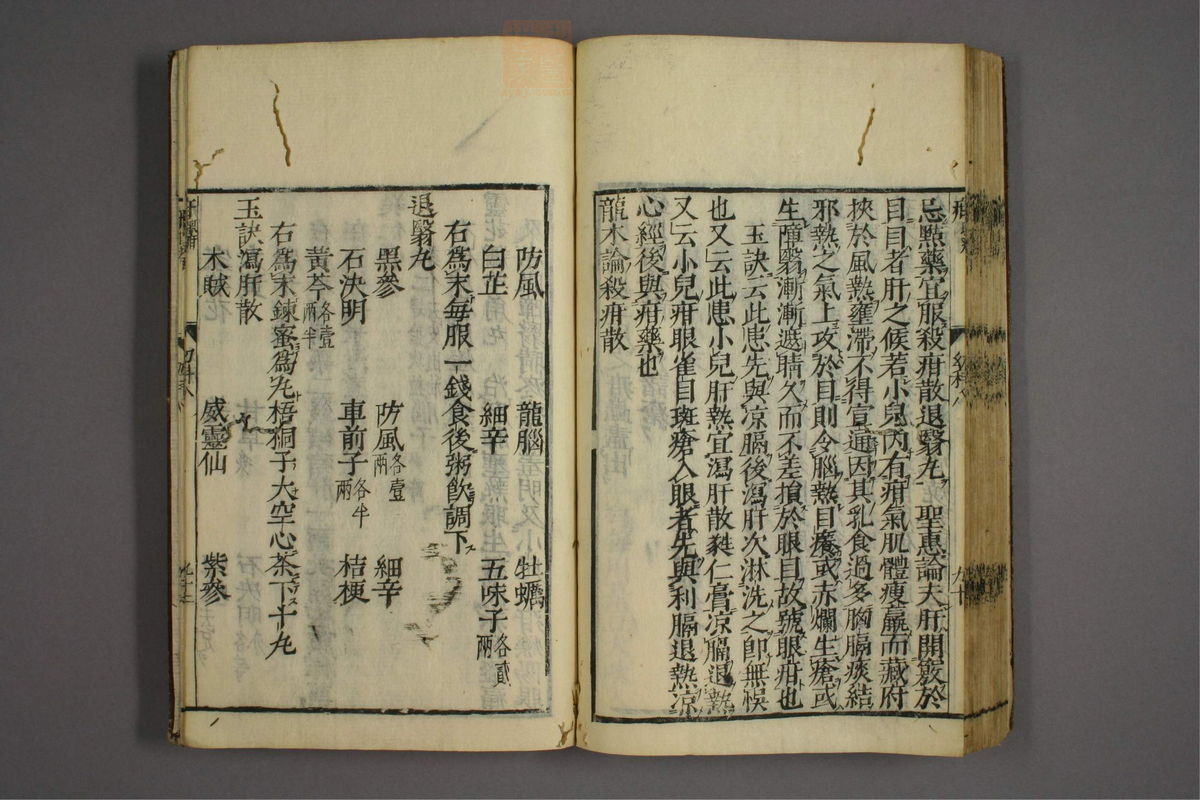 忌點藥宜服殺疳散退翳丸 聖惠論夫肝開竅於
目目者肝之候若小兒內有疳氣肌體瘦羸而藏府
挾於風熱壅滯不得宣通因其乳食過多胸膈痰結
邪熱之氣上攻於目則令腦熱目癢或赤爛生瘡或
生障翳漸漸遮睛久而不差損於眼目故號眼疳也
玉訣云此患先與凉膈後瀉肝次淋洗之即無悞
也又云此患小兒肝熱宜瀉肝散蕤仁膏凉膈退熱
又云小兒疳眼雀目斑瘡入眼者先與利膈退熱凉
心經後與疳藥也
龍木論殺疳散
防風 龍腦 牡蠣
白芷 細辛 五味子各貳兩
右爲末每服一錢食後粥飲調下
退翳丸
黑參 防風各壹兩 細辛
石決明 車前子各半兩 桔梗
黃芩各壹兩半
右爲末鍊蜜爲丸梧桐子大空心茶下十丸
玉訣瀉肝散
木賊 威靈仙 紫參